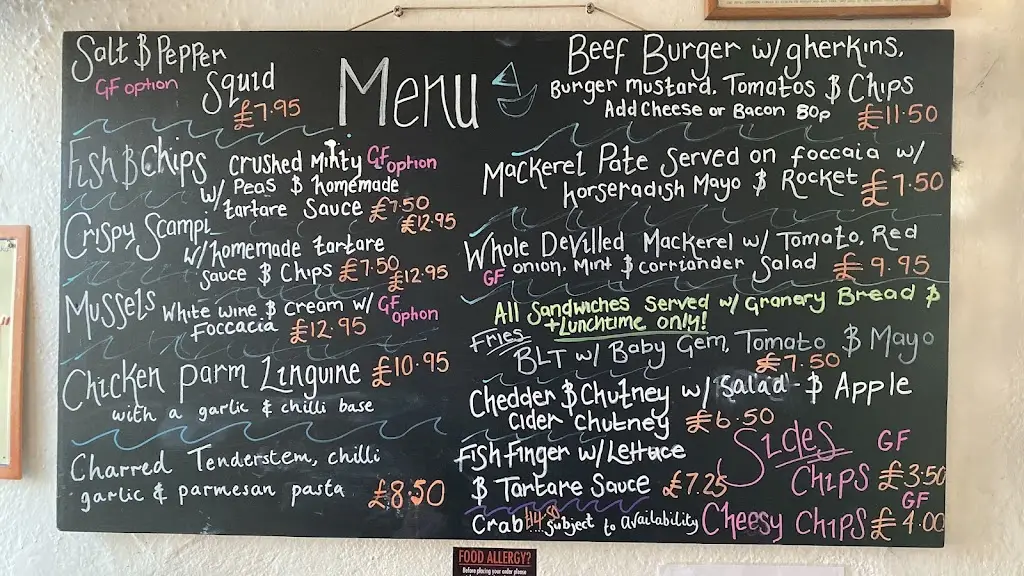 Menu
Salt & Pepper
GF option
Squid
£7.95
Fish & Chips crushed Minty GF option
w/ Peas & homemade
tartare Sauce £7.50
£12.95
Crispy Scampi
w/ homemade tartare
sauce & Chips £7.50
£12.95
Mussels White wine & Cream w/ GF option
Foccacia £12.95
Chicken parm Linguine £10.95
with a garlic & chilli base
Charred Tenderstem, chilli
garlic & parmesan pasta £8.50
Beef Burger w/ gherkins,
Burger mustard, Tomatos & Chips
Add Cheese or Bacon 80p £11.50
Mackerel Pate Served on foccaia w/
horseradish Mayo & Rocket £7.50
Whole Devilled Mackerel w/ Tomato, Red
GF onion, Mint & corriander Salad £9.95
All Sandwiches Served w/ Granary Bread &
Fries + Lunchtime only!
BLT w/ Baby Gem, Tomato & Mayo
£7.50
Chedder & Chutney w/ Salad & Apple
Cider Chutney £6.50
Fish Finger w/ Lettuce
& Tartare Sauce £7.25
Crab subject to availability
Sides
GF
Chips £3.50
GF
Cheesy Chips £4.00
FOOD ALLERGY?
Before placing your order please